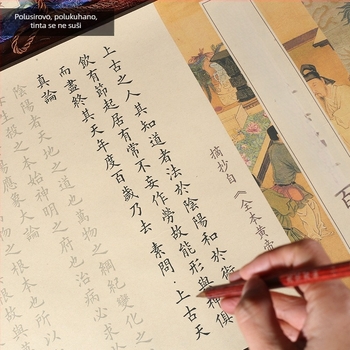 Polusirovo, polukuhano,
tinta se ne suši
摘抄自《全本黃帝
上古之人其知道者法於陰陽和於術
飲有節起居有常不妄作勞故能形與神俱
而盡終其天年度百歲乃去 素問·上古天
真論
陰陽者天地之道也萬物之綱紀變化之
生殺之本始神明之府也治病必求於
陽應象大論
之根本也所以